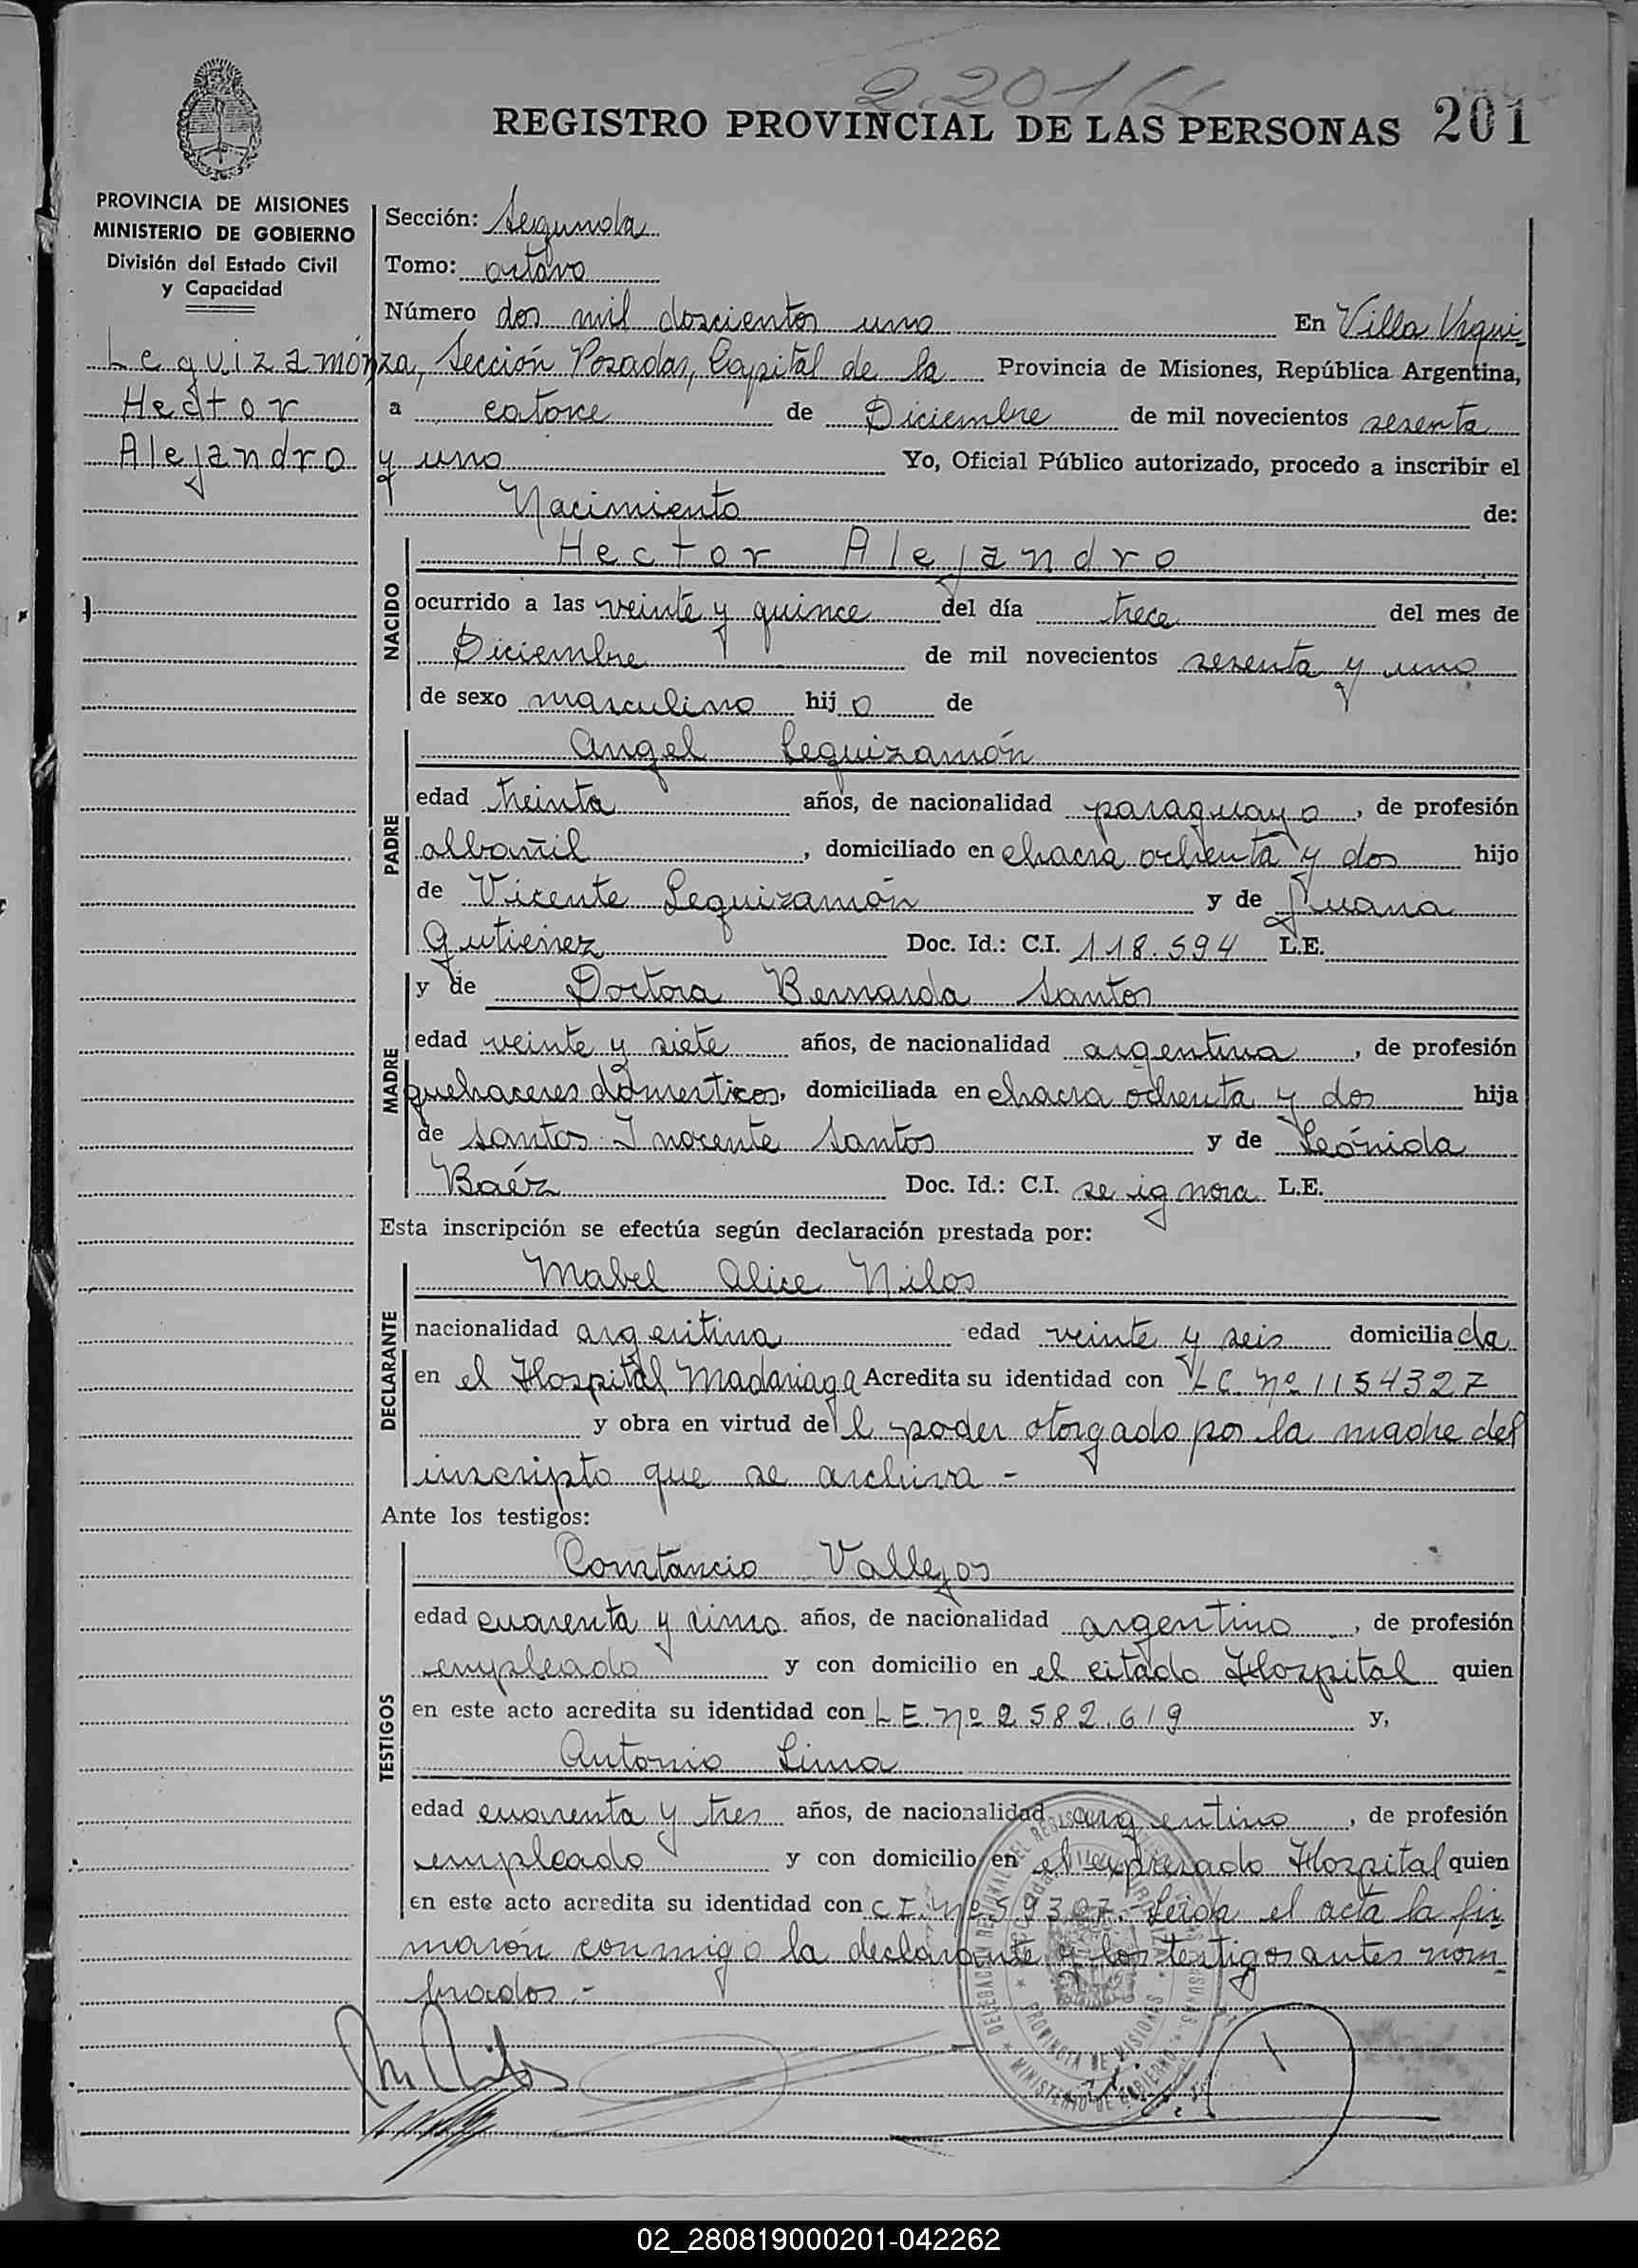 2.201
REGISTRO PROVINCIAL DE LAS PERSONAS 201
PROVINCIA DE MISIONES
MINISTERIO DE GOBIERNO
División del Estado Civil
y Capacidad
Leguizamón
Hector
Alejandro
Sección: Segunda
Tomo: octavo
Número dos mil doscientos uno En Villa Urqui-
za, Sección Posadas, Capital de la Provincia de Misiones, República Argentina,
a catorce de Diciembre de mil novecientos sesenta
y uno Yo, Oficial Público autorizado, procedo a inscribir el
Nacimiento de:
NACIDO
Hector Alejandro
ocurrido a las veinte y quince del día trece del mes de
Diciembre de mil novecientos sesenta y uno
de sexo masculino hijo de
PADRE
Angel Leguizamón
edad treinta años, de nacionalidad paraguayo, de profesión
albañil, domiciliado en chacra ochenta y dos hijo
de Vicente Leguizamón y de Juana
Gutierrez Doc. Id.: C.I. 118.594 L.E.
MADRE
y de Doctora Bernarda Santos
edad veinte y siete años, de nacionalidad argentina, de profesión
quehaceres domesticos, domiciliada en chacra ochenta y dos hija
de Santos Inocente Santos y de Leónida
Baéz Doc. Id.: C.I. se ignora L.E.
Esta inscripción se efectúa según declaración prestada por:
DECLARANTE
Mabel Alice Nilos
nacionalidad argentina edad veinte y seis domiciliada
en el Hospital Madariaga Acredita su identidad con LC. Nº 1154327
y obra en virtud del poder otorgado por la madre del
inscripto que se archiva -
Ante los testigos:
TESTIGOS
Constancio Vallejos
edad cuarenta y cinco años, de nacionalidad argentino, de profesión
empleado y con domicilio en el citado Hospital quien
en este acto acredita su identidad con LE. Nº 2582.619 y,
Antonio Lima
edad cuarenta y tres años, de nacionalidad argentino, de profesión
empleado y con domicilio en el expresado Hospital quien
en este acto acredita su identidad con C.I. Nº 59307.- Leída el acta la fir-
maron conmigo la declarante y los testigos antes nom-
brados.-
PROVINCIA DE MISIONES
MINISTERIO DE GOBIERNO
02_280819000201-042262